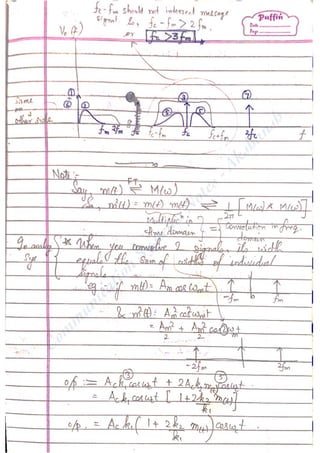 fc-fm should not intersect message
signal &
fc-fm > 2fm
or fc > 3fm
Puffin
Date
Page
V₀(f)
same
on
other side
① ② ③ ⑤ ⑤ ⑦
fm 2fm fc-fm fc fc+fm 2fc f
Note :-
Say, m(t) ⇌ M(ω)
FT
So, m²(t) = m(t) m(t) ⇌ 1/2π [M(ω) * M(ω)]
Multiplic in
time domain = convolution in freq.
domain
In analog
Sys
* When you convolve 2 signals, its width
equals the sum of widths of individual
signals.
eg: if m(t) = Am cos ωmt
-fm 0 fm
& m²(t) = Am² cos²ωmt
= Am²/2 + Am²/2 cos 2ωmt
-2fm 2fm
③ ⑤
o/p := Ac k₁ cosωct + 2Ac k₂ m(t) cosωct
= Ac k₁ cosωct [1 + 2k₂/k₁ m(t)]
o/p. = Ac k₁ (1 + 2k₂/k₁ m(t)) cosωct